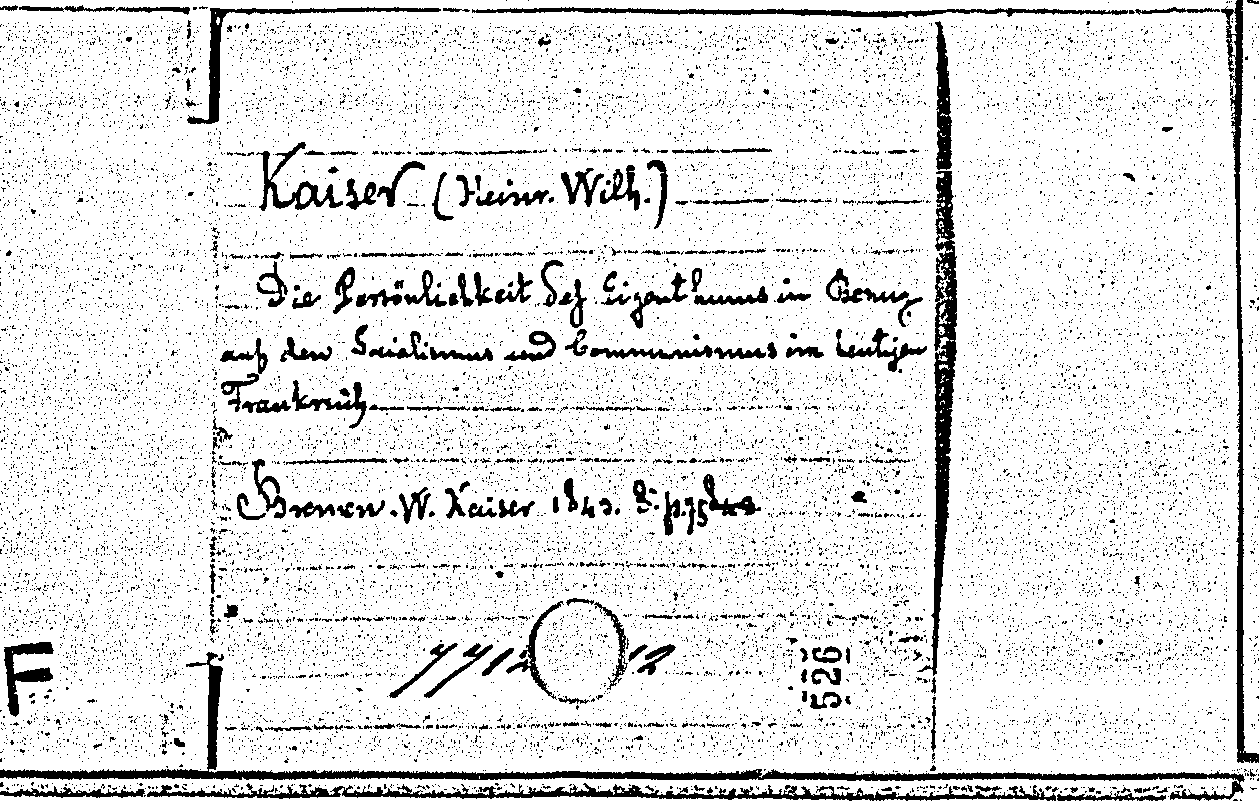 Kaiser (Heinr. Wilh.)
Die Persönlichkeit des Eigenthums in Bezug
auf den Socialismus und Communismus im heutigen
Frankreich.
Bremen. W. Kaiser 1843. 8.
526
F